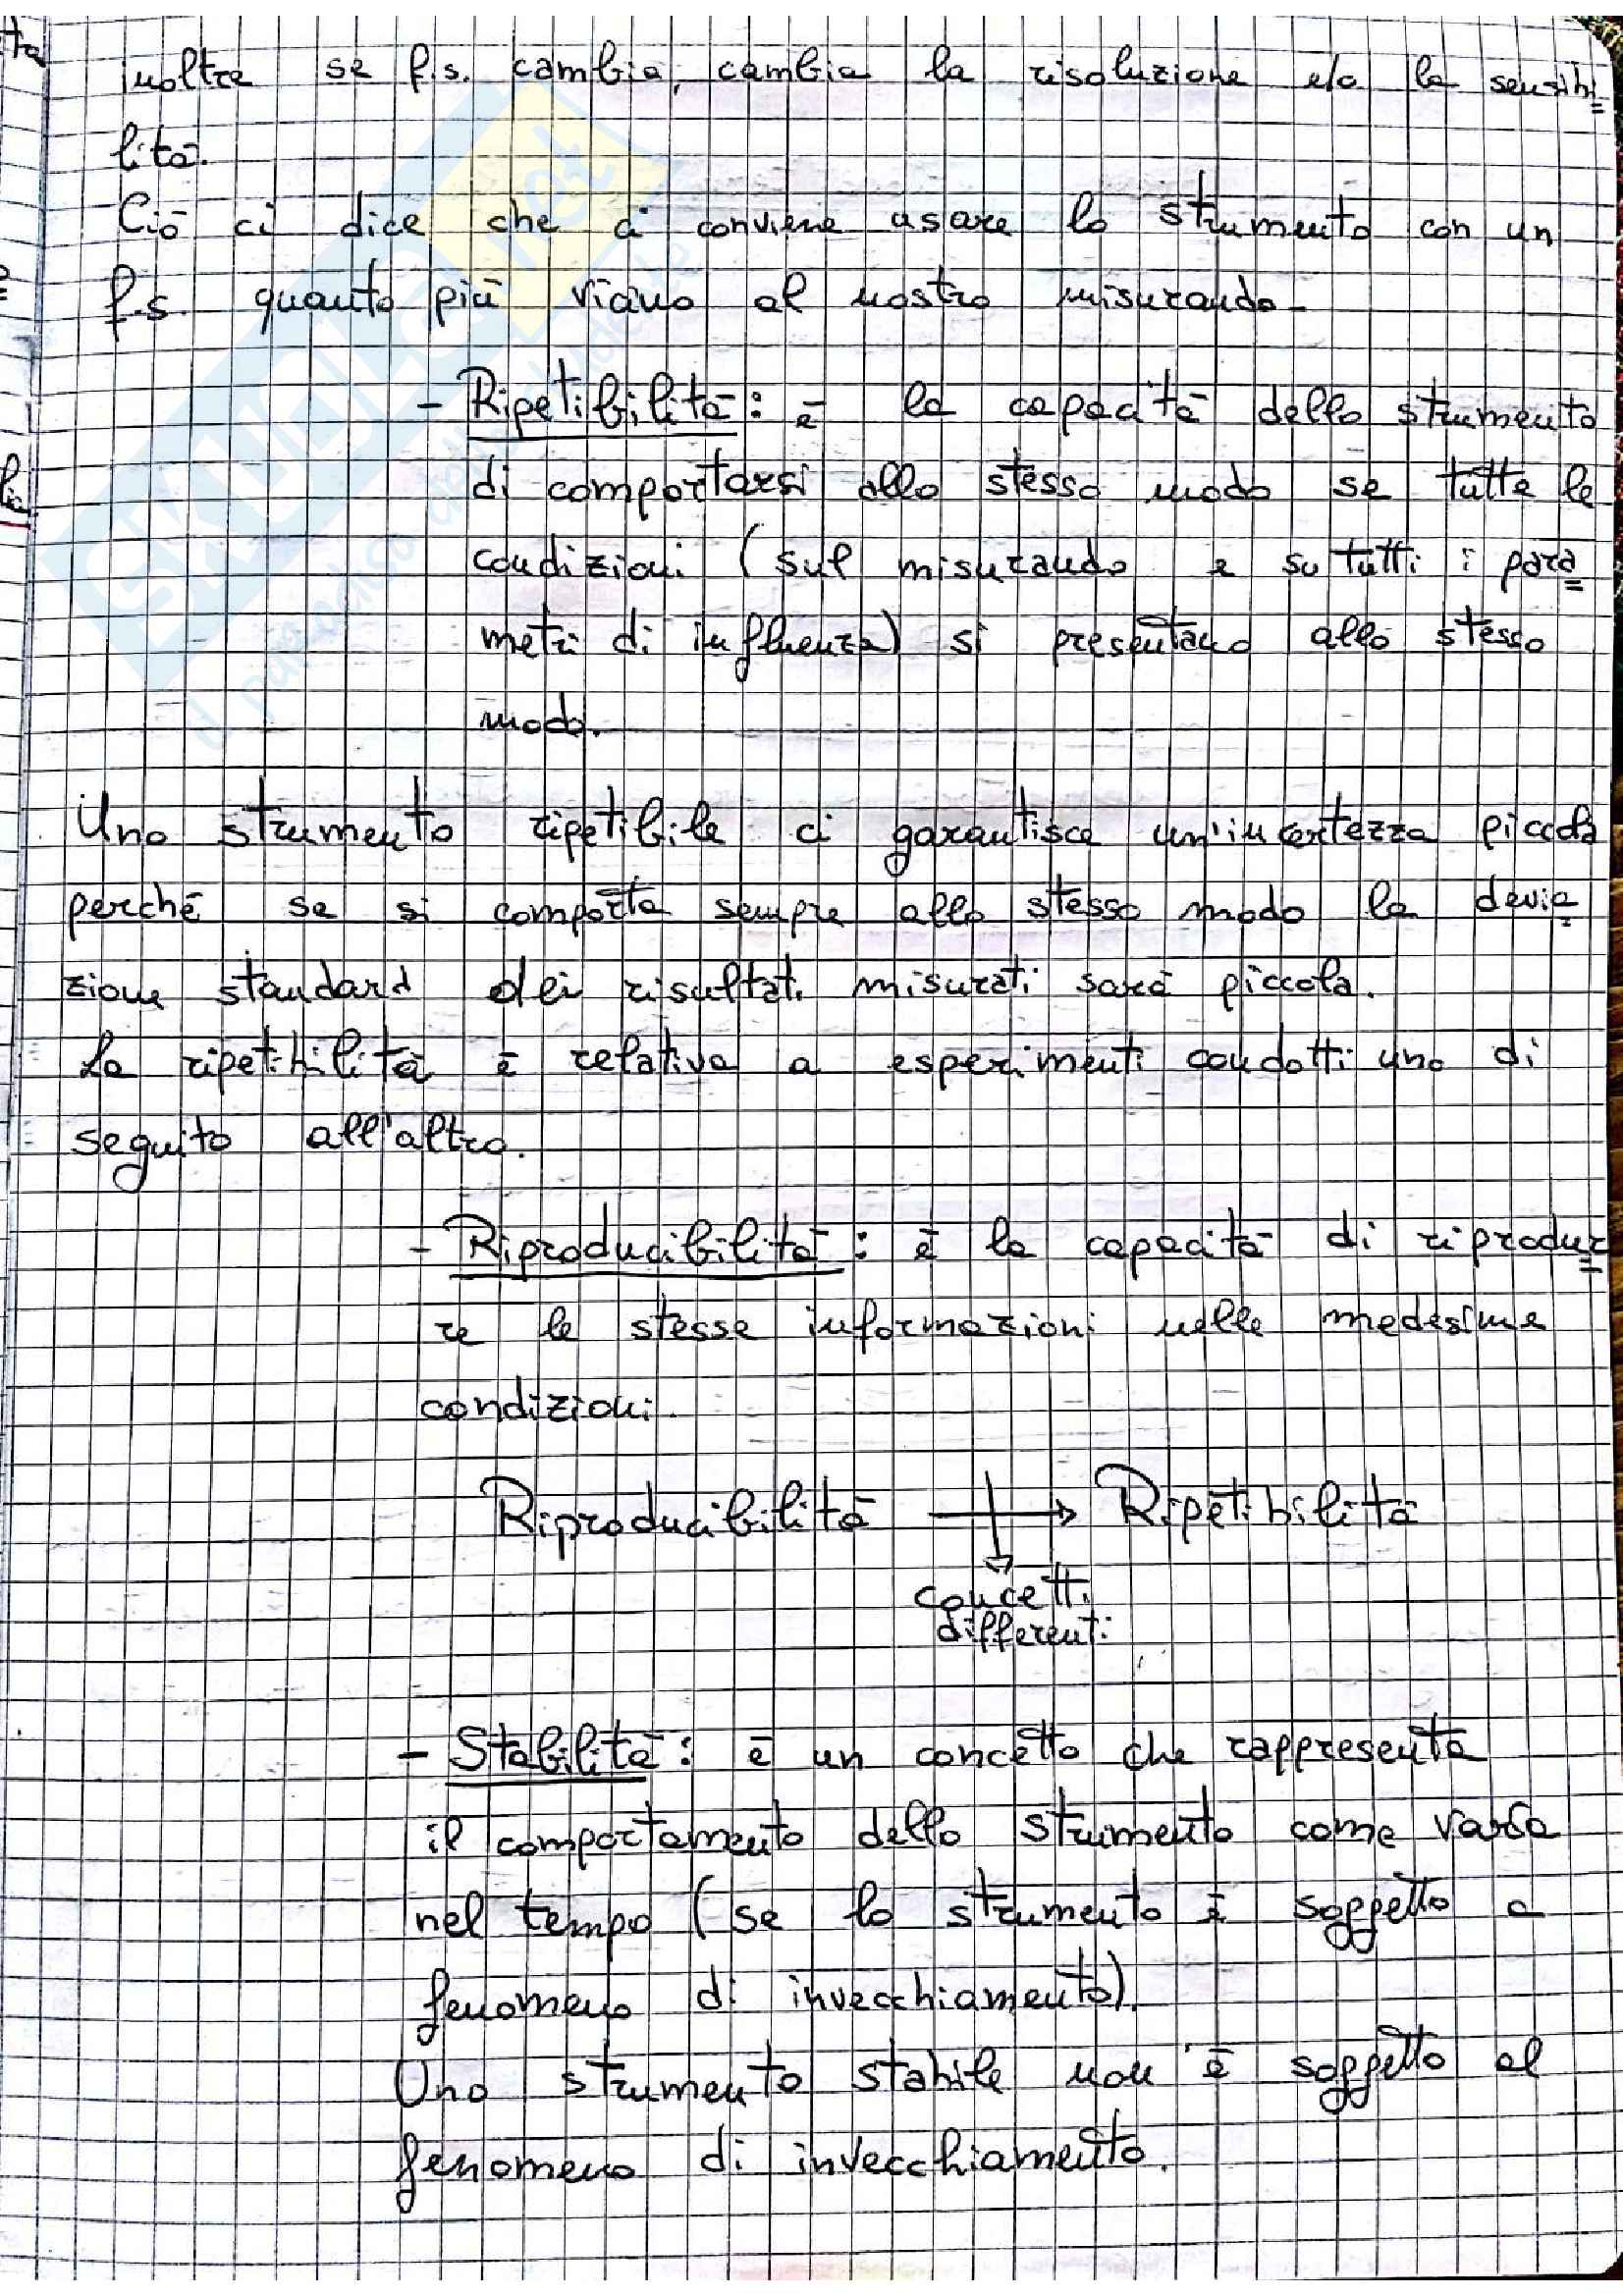 inoltre se f.s. cambia, cambia la risoluzione e/o la sensibi=
lità.
Ciò ci dice che ci conviene usare lo strumento con un
f.s. quanto più vicino al nostro misurando.
- Ripetibilità: è la capacità dello strumento
di comportarsi allo stesso modo se tutte le
condizioni (sul misurando e su tutti i para=
metri di influenza) si presentano allo stesso
modo.
Uno strumento ripetibile ci garantisce un'incertezza piccola
perché se si comporta sempre allo stesso modo la devia=
zione standard dei risultati misurati sarà piccola.
La ripetibilità è relativa a esperimenti condotti uno di
seguito all'altro.
- Riproducibilità: è la capacità di riprodur=
re le stesse informazioni nelle medesime
condizioni.
Riproducibilità → Ripetibilità
concetti
differenti
- Stabilità: è un concetto che rappresenta
il comportamento dello strumento come varia
nel tempo (se lo strumento è soggetto a
fenomeno di invecchiamento).
Uno strumento stabile non è soggetto al
fenomeno di invecchiamento.
skuola.net
il paradiso dello studente